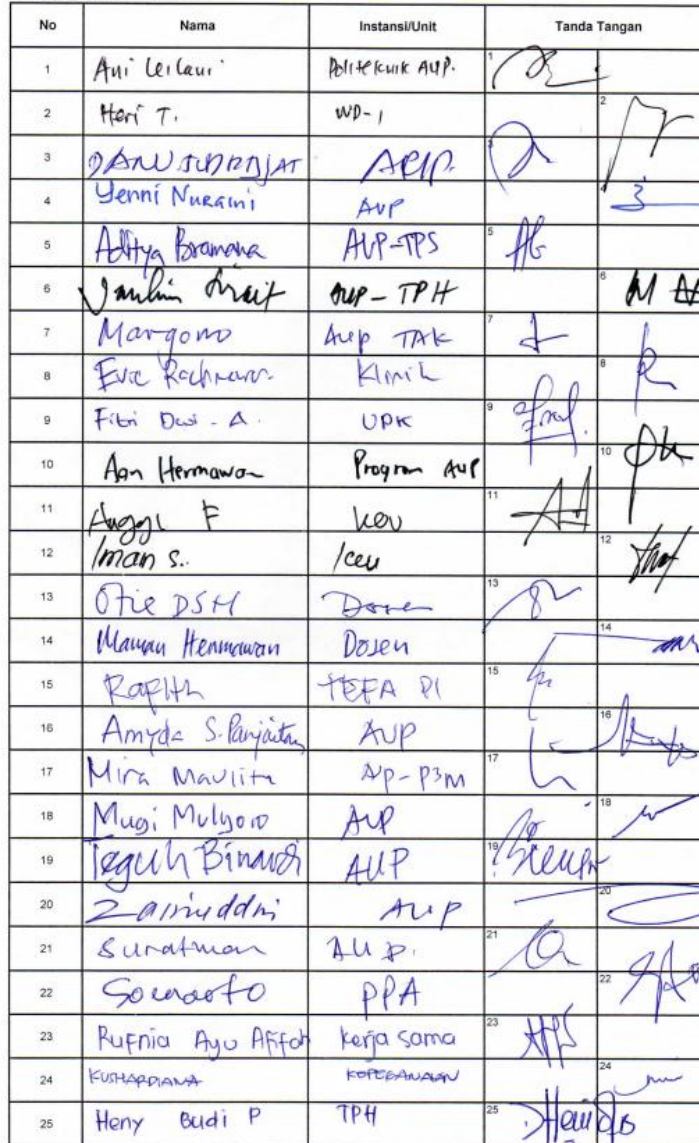 No Nama Instansi/Unit Tanda Tangan
1 Ani Leilani Politeknik AUP. 1
2 Heri T. WD-1 2
3 DANU SUDRADJAT AUP. 3
4 Yenni Nuraini AUP
5 Aditya Bramana AUP-TPS 5
6 AUP-TPH 6
7 Margono AUP TAK 7
8 Klinik 8
9 Fitri Dwi - A. UPK 9
10 Aan Hermawan Program AUP 10
11 Anggi F keu 11
12 Iman S. keu 12
13 Otie DSH Dosen 13
14 Maman Hermawan Dosen 14
15 TEFA PI 15
16 Amyda S. Panjaitan AUP 16
17 Mira Maulita AUP-P3M 17
18 Mugi Mulyono AUP 18
19 Teguh Binardi AUP 19
20 Zainuddin AUP 20
21 Suratman AUP. 21
22 PPA 22
23 Rufnia Ayu Afifah Kerja sama 23
24 KUSHARDIANA 24
25 Heny Budi P TPH 25